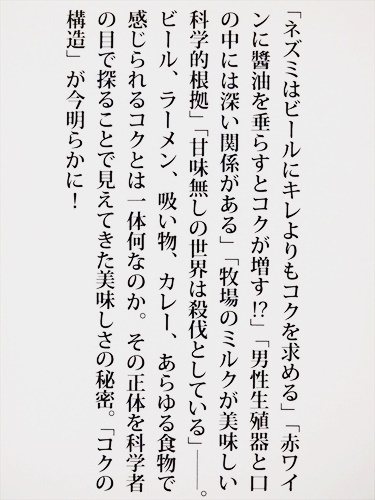 「ネズミはビールにキレよりもコクを求める」「赤ワイ
ンに醬油を垂らすとコクが増す!?」「男性生殖器と口
の中には深い関係がある」「牧場のミルクが美味しい
科学的根拠」「甘味無しの世界は殺伐としている」――。
ビール、ラーメン、吸い物、カレー、あらゆる食物で
感じられるコクとは一体何なのか。その正体を科学者
の目で探ることで見えてきた美味しさの秘密。「コクの
構造」が今明らかに！